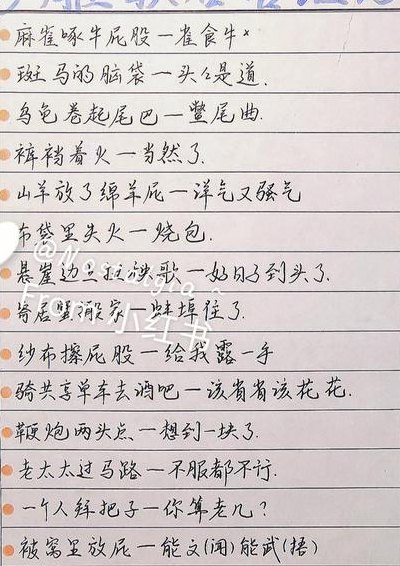 麻雀啄牛屁股一雀食牛×
斑马的脑袋一头头是道.
乌龟卷起尾巴一鳖尾曲.
裤裆着火一当然了.
山羊放了绵羊屁一洋气又骚气
布袋里失火一烧包.
悬崖边上扭秧歌一好日子到头了.
寄居蟹搬家一蚌埠住了.
纱布擦屁股一给我露一手
骑共享单车去酒吧一该省省该花花.
鞭炮两头点一想到一块了.
老太太过马路一不服都不行.
一个人拜把子一你算老几?
被窝里放屁一能文(闻)能武(捂)
@Nostalgia
From 小红书